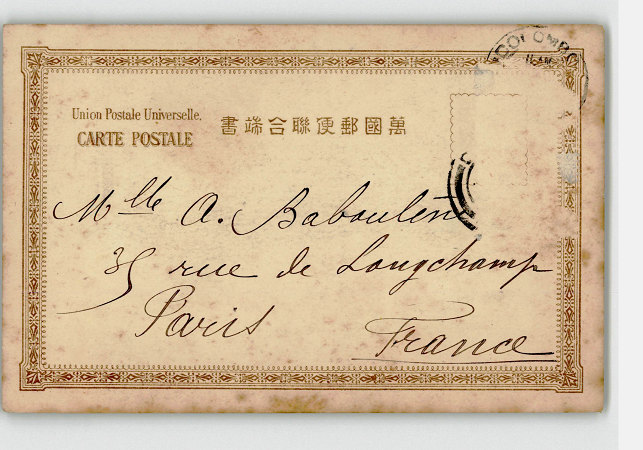 COLOMBO
Union Postale Universelle.
CARTE POSTALE
萬國郵便聯合端書
Mlle A. Baboulène
35 rue de Longchamp
Paris
France